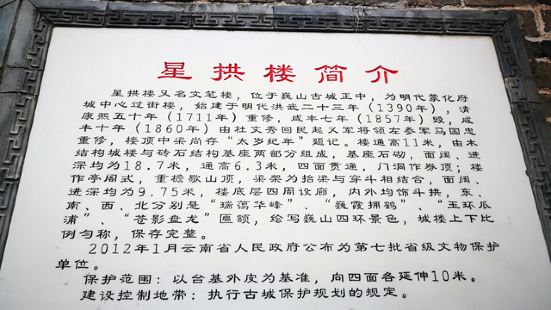 星拱楼简介
星拱楼又名文笔楼，位于巍山古城正中，为明代蒙化府
城中心过街楼，始建于明代洪武二十三年（1390年），清
康熙五十年（1711年）重修，咸丰七年（1857年）毁，咸
丰十年（1860年）由杜文秀回民起义军将领左参军马国忠
重修，楼顶中梁尚存“太岁纪年”题记。楼通高11米，由木
结构城楼与砖石结构基座两部分组成，基座石砌，面阔、进
深均为18.7米，通高6.3米，四面贯通，门洞作券顶；楼
作亭阁式，重檐歇山顶，梁架为抬梁与穿斗相结合，面阔、
进深均为9.75米，楼底层四周设廊，内外均饰斗拱，东、
南、西、北分别是“瑞霭华峰”、“巍霞拥鹤”、“玉环瓜
浦”、“苍影盘龙”匾额，绘写巍山四环景色，城楼上下比
例匀称，保存完整。
2012年1月云南省人民政府公布为第七批省级文物保护
单位。
保护范围：以台基外皮为基准，向四面各延伸10米。
建设控制地带：执行古城保护规划的规定。